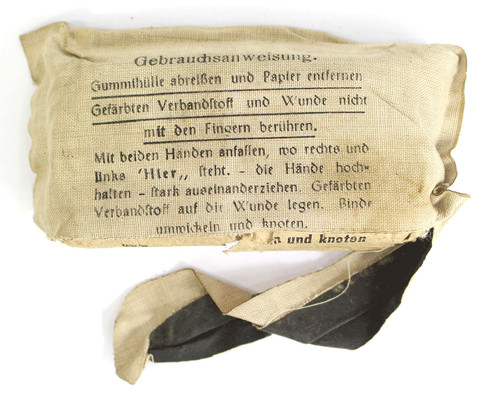 Gebrauchsanweisung.
Gummihülle abreißen und Papier entfernen
Gefärbten Verbandstoff und Wunde nicht
mit den Fingern berühren.
Mit beiden Händen anfassen, wo rechts und
links 'Hier„ steht. - die Hände hoch-
halten - stark auseinanderziehen. Gefärbten
Verbandstoff auf die Wunde legen. Binde
umwickeln und knoten.
und knoten